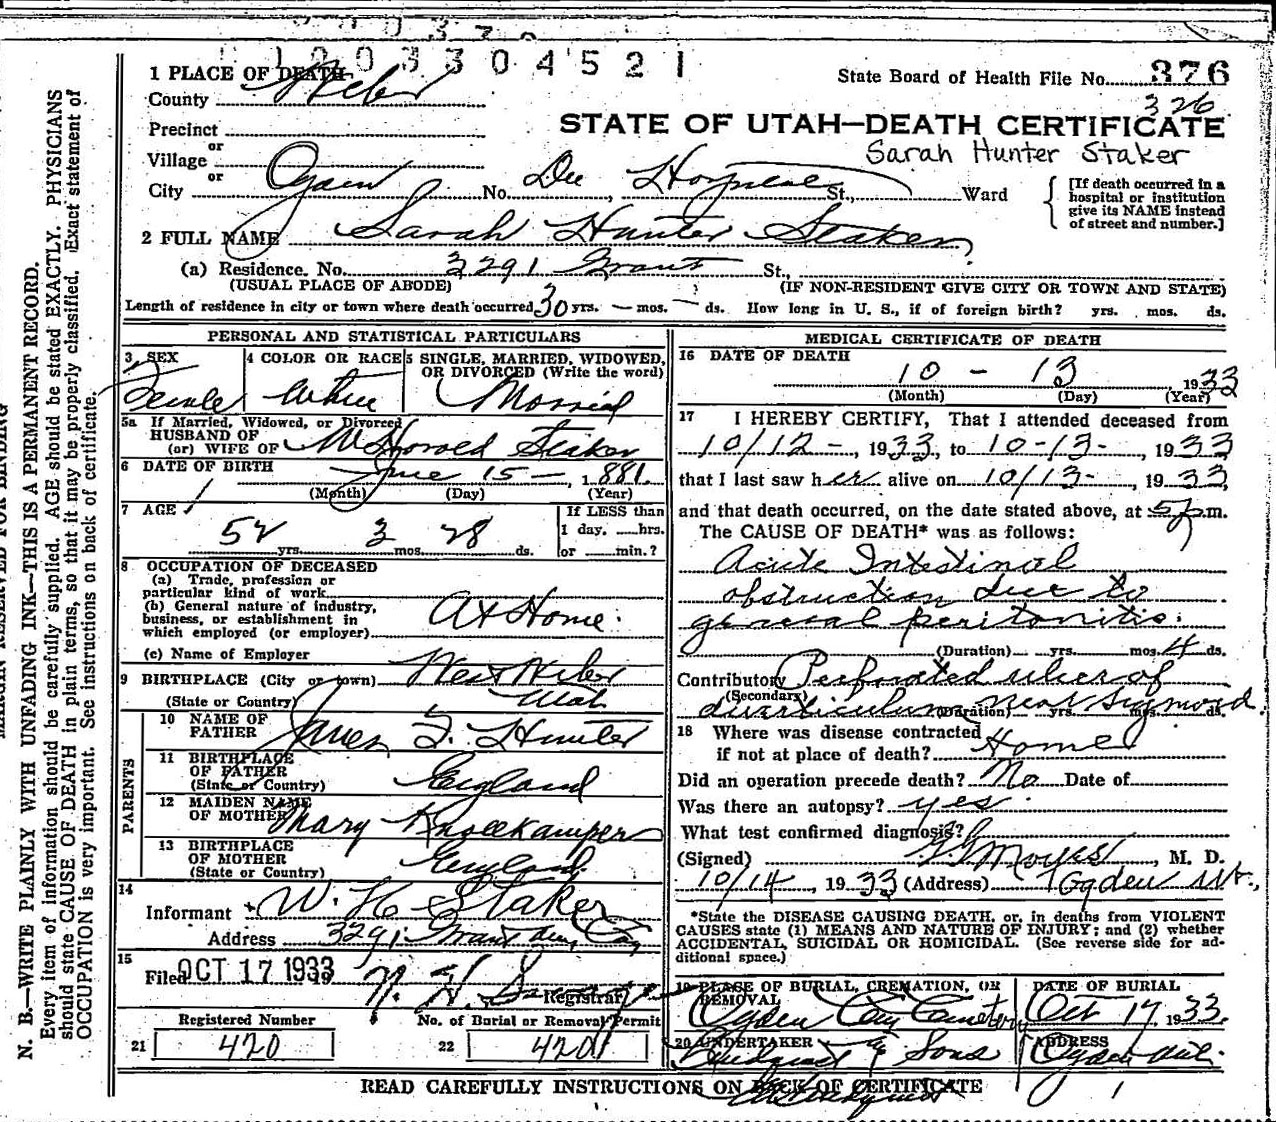 1003304521
1 PLACE OF DEATH
State Board of Health File No. 376
County Weber
326
Precinct
STATE OF UTAH—DEATH CERTIFICATE
or
Village
Sarah Hunter Staker
or
City Ogden No. Dee Hospital St., Ward
[If death occurred in a
hospital or institution
give its NAME instead
of street and number.]
2 FULL NAME Sarah Hunter Staker
(a) Residence. No. 3291 Grant St.,
(USUAL PLACE OF ABODE) (IF NON-RESIDENT GIVE CITY OR TOWN AND STATE)
Length of residence in city or town where death occurred 30 yrs. — mos. — ds. How long in U. S., if of foreign birth? yrs. mos. ds.
PERSONAL AND STATISTICAL PARTICULARS
3. SEX 4 COLOR OR RACE 5 SINGLE, MARRIED, WIDOWED,
OR DIVORCED (Write the word)
Female White Married
5a If Married, Widowed, or Divorced
HUSBAND OF
(or) WIFE OF W Howard Staker
6 DATE OF BIRTH June 15 —, 1881.
(Month) (Day) (Year)
7 AGE If LESS than
52 3 28 1 day, hrs.
yrs. mos. ds. or min.?
8 OCCUPATION OF DECEASED
(a) Trade, profession or
particular kind of work
(b) General nature of industry,
business, or establishment in
which employed (or employer) At Home.
(c) Name of Employer
9 BIRTHPLACE (City or town) West Weber
(State or Country) Utah
PARENTS
10 NAME OF
FATHER James Hunter
11 BIRTHPLACE
OF FATHER
(State or Country) England
12 MAIDEN NAME
OF MOTHER Mary
13 BIRTHPLACE
OF MOTHER
(State or Country) England
14
Informant W. H. Staker
Address 3291 Grant
15
Filed OCT 17 1933 Registrar
Registered Number No. of Burial or Removal Permit
21 420 22 420
MEDICAL CERTIFICATE OF DEATH
16 DATE OF DEATH
10 - 13, 1933
(Month) (Day) (Year)
17 I HEREBY CERTIFY, That I attended deceased from
10/12 -, 1933, to 10-13-, 1933
that I last saw her alive on 10/13-, 1933,
and that death occurred, on the date stated above, at 5 p.m.
The CAUSE OF DEATH* was as follows:
Acute Intestinal
obstruction due to
general peritonitis.
(Duration) yrs. mos. 4 ds.
Contributory Perforated ulcer of
(Secondary)
diverticulum near Sigmoid.
(Duration) yrs. mos. ds.
18 Where was disease contracted
if not at place of death? Home
Did an operation precede death? No Date of
Was there an autopsy? yes.
What test confirmed diagnosis?
(Signed) Moyes, M. D.
10/14, 1933 (Address) Ogden Ut.,
*State the DISEASE CAUSING DEATH, or, in deaths from VIOLENT
CAUSES state (1) MEANS AND NATURE OF INJURY; and (2) whether
ACCIDENTAL, SUICIDAL OR HOMICIDAL. (See reverse side for ad-
ditional space.)
19 PLACE OF BURIAL, CREMATION, OR
REMOVAL
Ogden City Cemetery
DATE OF BURIAL
Oct 17 1933.
20 UNDERTAKER
Lindquist & Sons
ADDRESS
Ogden Ut.
READ CAREFULLY INSTRUCTIONS ON BACK OF CERTIFICATE
MARGIN RESERVED FOR BINDING
N. B.—WRITE PLAINLY WITH UNFADING INK—THIS IS A PERMANENT RECORD.
Every item of information should be carefully supplied. AGE should be stated EXACTLY. PHYSICIANS
should state CAUSE OF DEATH in plain terms, so that it may be properly classified. Exact statement of
OCCUPATION is very important. See instructions on back of certificate.